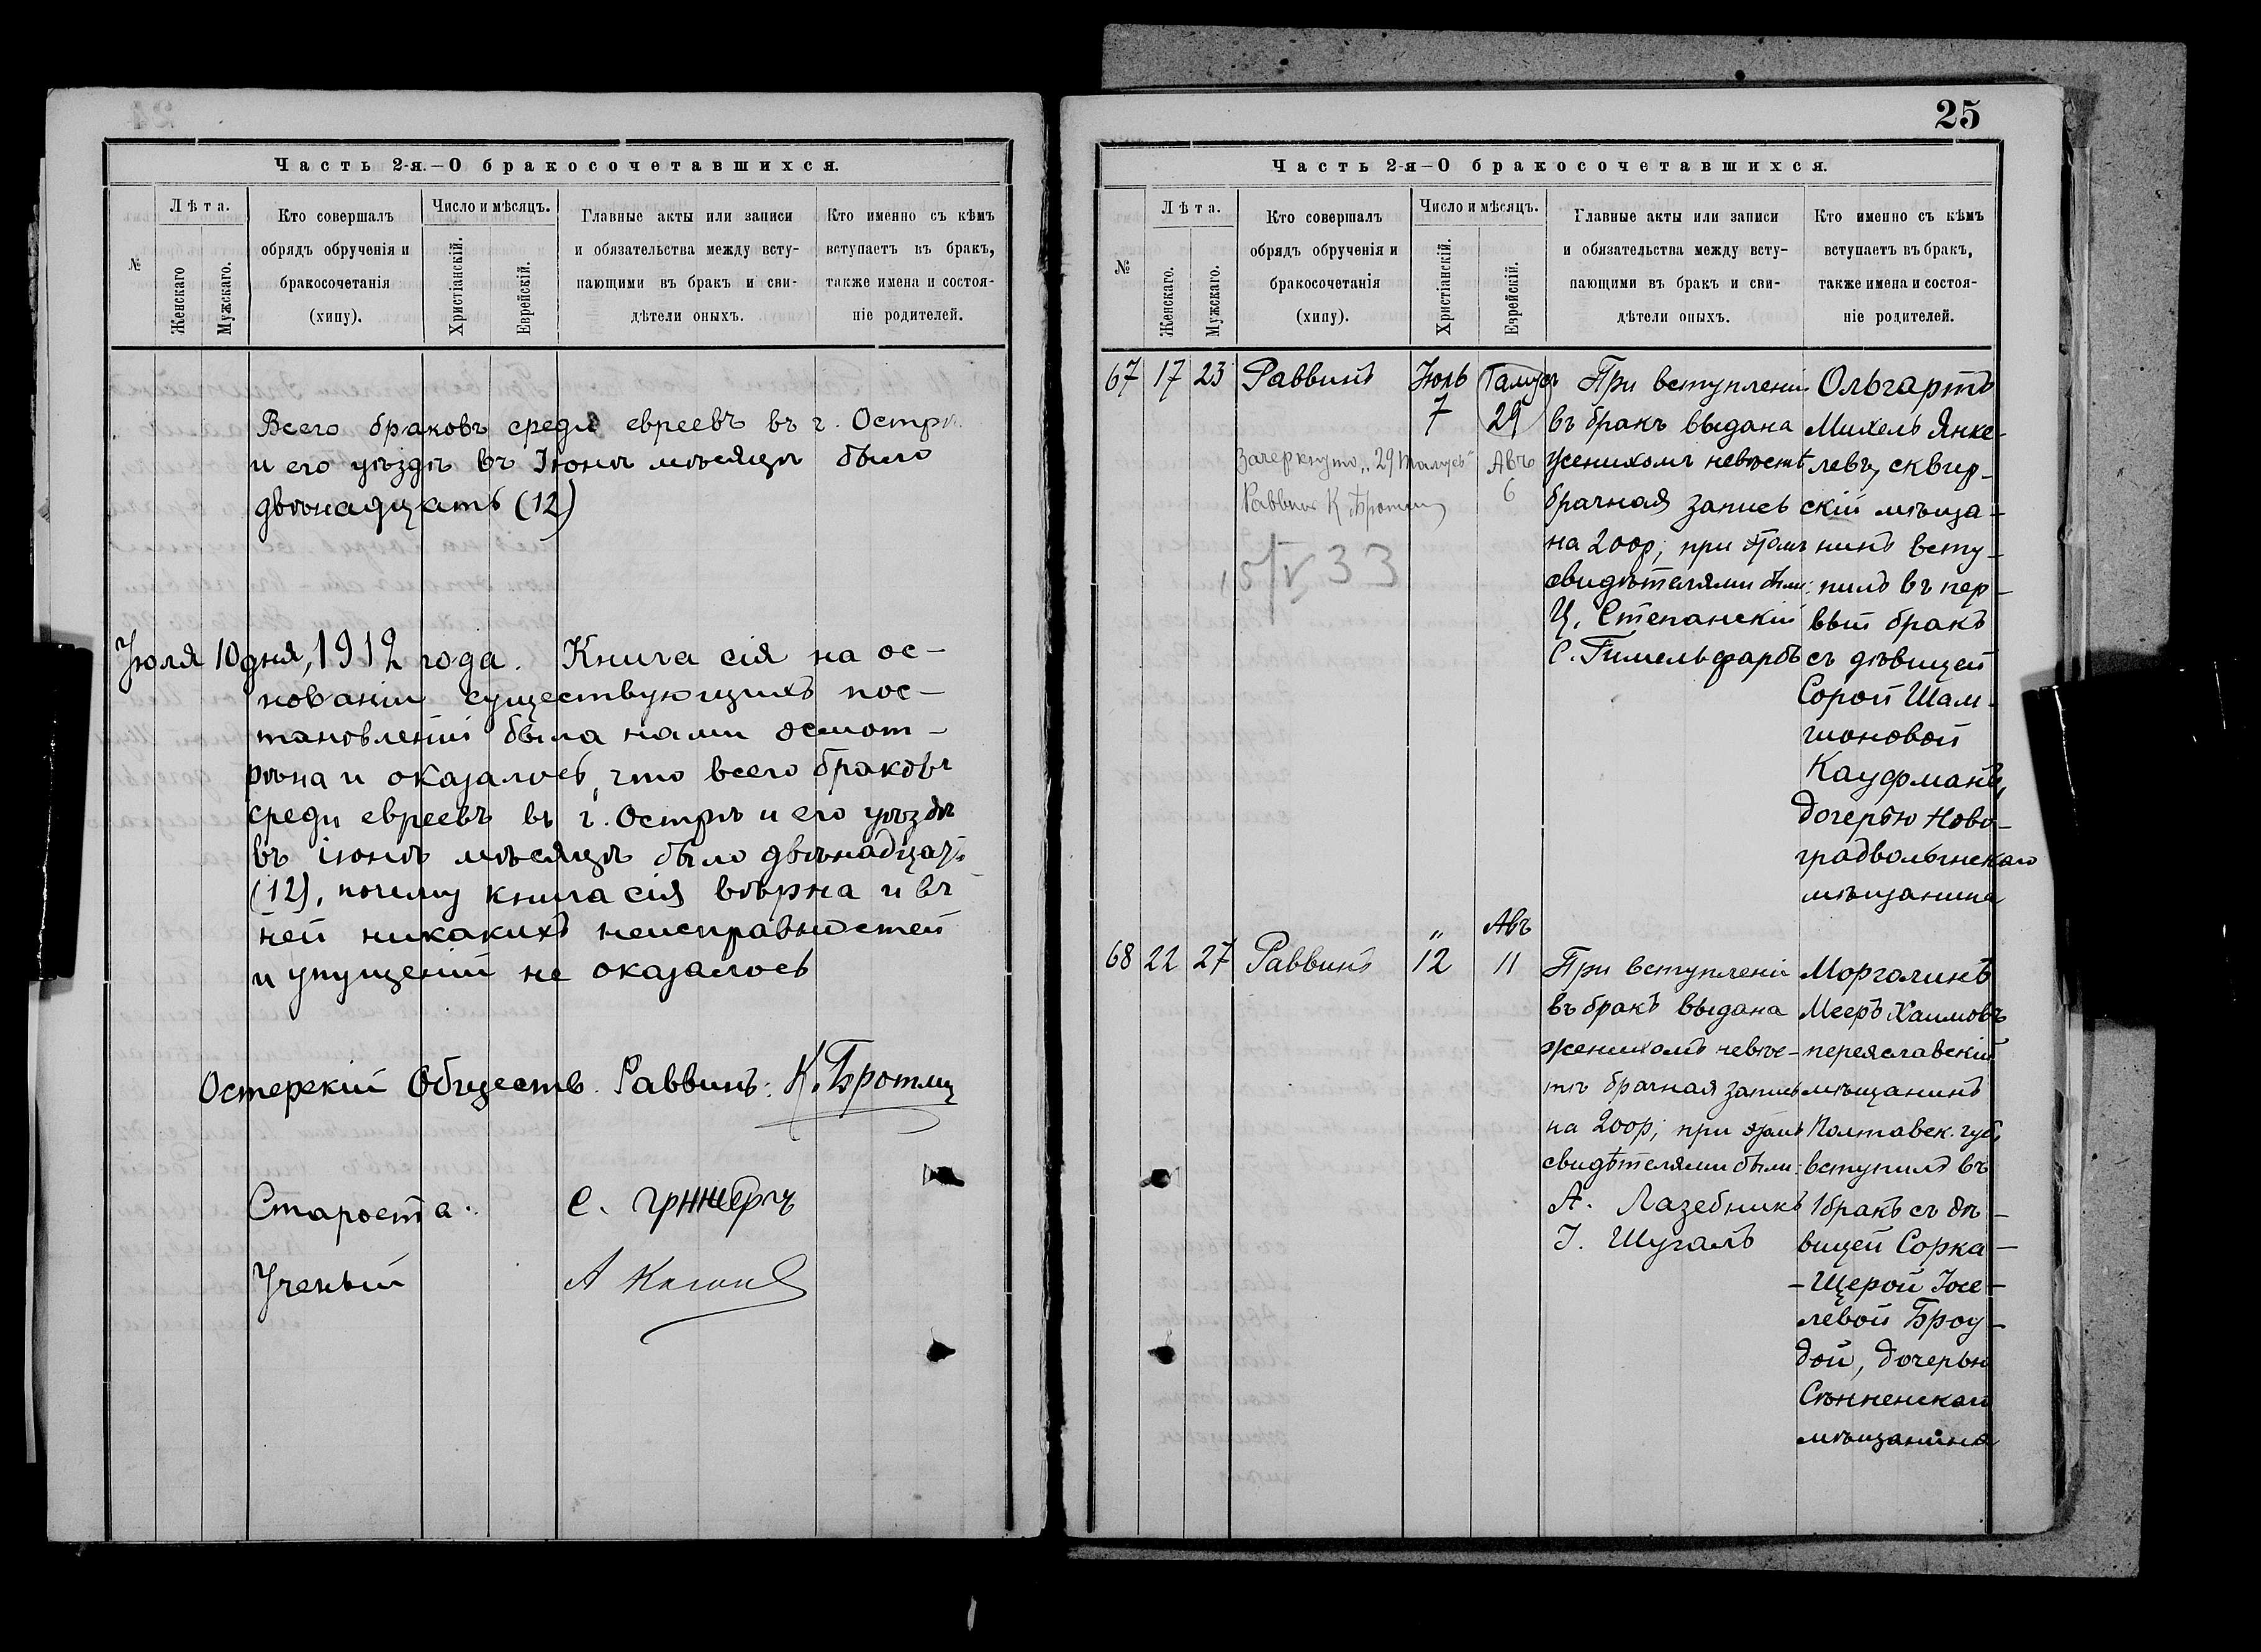 Часть 2-я.—О бракосочетавшихся.
№
Лѣта.
Женскаго
Мужскаго.
Кто совершалъ
обрядъ обрученія и
бракосочетанія
(хипу).
Число и мѣсяцъ.
Христіанскій.
Еврейскій.
Главные акты или записи
и обязательства между всту-
пающими въ бракъ и сви-
дѣтели оныхъ.
Кто именно съ кѣмъ
вступаетъ въ бракъ,
также имена и состоя-
ніе родителей.
Всего браковъ среди евреевъ въ г. Острѣ
и его уѣздѣ въ Іюнѣ мѣсяцѣ было
двѣнадцать (12)
Іюля 10 дня, 1912 года. Книга сія на ос-
нованіи существующихъ пос-
тановленій была нами осмот-
рѣна и оказалось, что всего браковъ
среди евреевъ въ г. Острѣ и его уѣздѣ
въ іюнѣ мѣсяцѣ было двѣнадцать
(12), почему книга сія вѣрна и въ
ней никакихъ неисправностей
и упущеній не оказалось
Остерскій Обществ. Раввинъ: К. Бротми
Староста.
Ученый
25
Часть 2-я—О бракосочетавшихся.
№
Лѣта.
Женскаго.
Мужскаго.
Кто совершалъ
обрядъ обрученія и
бракосочетанія
(хипу).
Число и мѣсяцъ.
Христіанскій.
Еврейскій.
Главные акты или записи
и обязательства между всту-
пающими въ бракъ и сви-
дѣтели оныхъ.
Кто именно съ кѣмъ
вступаетъ въ бракъ,
также имена и состоя-
ніе родителей.
67 17 23 Раввинъ
Іюль
7
Тамузъ
29
Авъ
6
Зачеркнуто „29 Тамузъ“
Раввинъ К. Бротми
15/V 33
При вступленіи
въ бракъ выдана
женихомъ невѣстѣ
брачная запись
на 200р; при этомъ
свидѣтелями были:
Ц. Степанскій
С. Гимельфарбъ
Ольгартъ
Михель Янке-
левъ, сквир-
скій мѣща-
нинъ всту-
пилъ въ пер-
вый бракъ
съ дѣвицей
Сорой Шам-
шоновой
Кауфманъ,
дочерью Ново-
градволынскаго
мѣщанина
68 22 27 Раввинъ
„
12
Авъ
11
При вступленіи
въ бракъ выдана
женихомъ невѣс-
тѣ брачная запись
на 200р; при этомъ
свидѣтелями были:
А. Лазебникъ
І. Шугалъ
Морголинъ
Мееръ Хаимовъ
переяславскій
мѣщанинъ
Полтавск. губ.
вступилъ въ
1 бракъ съ дѣ-
вицей Сорка-
-Щерой Іосе-
левой Броу-
дой, дочерью
Сѣнненскаго
мѣщанина